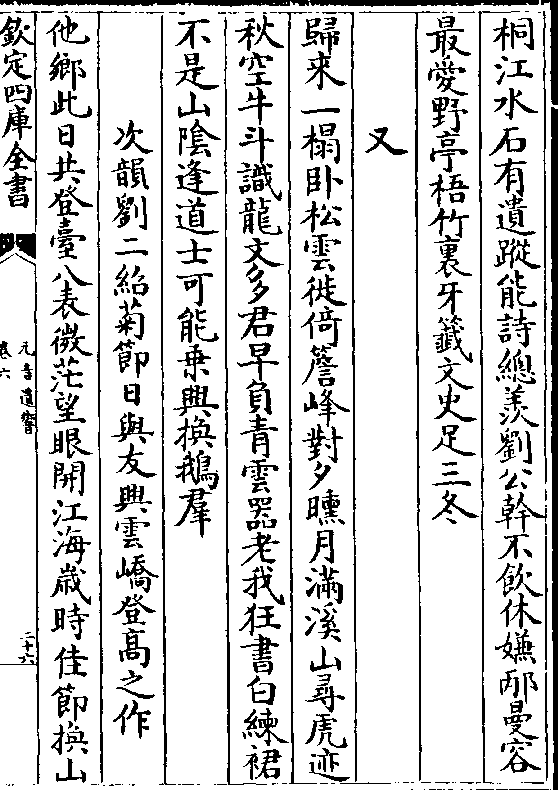 桐江水石有遺蹤能詩總羡劉公幹不飲休嫌邴曼容
最愛野亭梧竹裏牙籤文史足三冬
又
歸來一榻卧松雲徙倚簷峰對夕曛月滿溪山尋虎迹
秋空牛斗識龍文多君早負青雲器老我狂書白練裙
不是山陰逢道士可能乗興換鵝羣
次韻劉二紹菊節日與友興雲嶠登髙之作
他鄉此日共登臺八表微茫望眼開江海歳時佳節換山
欽定四庫全書
元音遺響
卷六
二十六